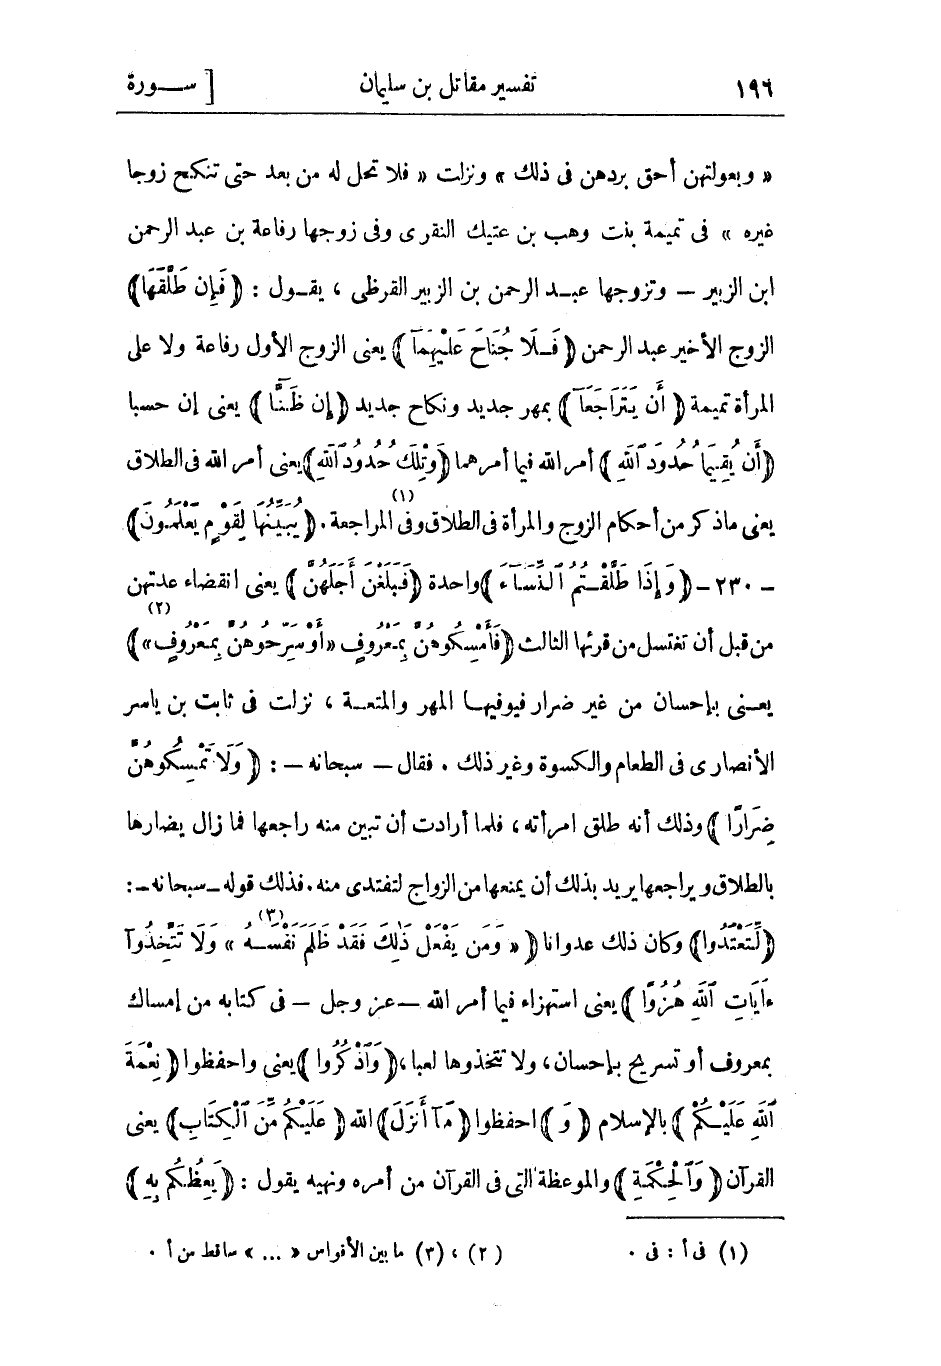 ١٩٦ تفسير مقاتل بن سليمان [ سـورة
« وبعولتهن أحق بردهن فى ذلك » ونزلت « فلا تحل له من بعد حتى تنكح زوجا
غيره » فى تميمة بنت وهب بن عتيك النقرى وفى زوجها رفاعة بن عبد الرحمن
ابن الزبير — وتزوجها عبـد الرحمن بن الزبير القرظى ، يقـول : ﴿ فَإِن طَلَّقَهَا ﴾
الزوج الأخير عبد الرحمن ﴿ فَـلَا جُنَاحَ عَلَيْهِمَآ ﴾ يعنى الزوج الأول رفاعة ولا على
المرأة تميمة ﴿ أَن يَتَرَاجَعَآ ﴾ بمهر جديد ونكاح جديد ﴿ إِن ظَـنَّآ ﴾ يعنى إن حسبا
﴿ أَن يُقِيمَا حُدُودَ ٱللَّهِ ﴾ أمر الله فيما أمرهما ﴿ وَتِلْكَ حُدُودُ ٱللَّهِ ﴾ يعنى أمر الله فى الطلاق
يعنى ما ذكر من أحكام الزوج والمرأة فى الطلاق وفى (١) المراجعة . ﴿ يُبَيِّنُهَا لِقَوْمٍ يَعْلَمُونَ ﴾
- ٢٣٠ - ﴿ وَإِذَا طَلَّقْـتُمُ ٱلنِّسَآءَ ﴾ واحدة ﴿ فَبَلَغْنَ أَجَلَهُنَّ ﴾ يعنى انقضاء عدتهن
من قبل أن تغتسل من قرئها الثالث ﴿ فَأَمْسِكُوهُنَّ بِمَعْرُوفٍ «أَوْ سَرِّحُوهُنَّ بِمَعْرُوفٍ» (٢) ﴾
يعـنى بإحسان من غير ضرار فيوفيهـا المهر والمتعـة ، نزلت فى ثابت بن ياسر
الأنصارى فى الطعام والكسوة وغير ذلك . فقال — سبحانه — : ﴿ وَلَا تُمْسِكُوهُنَّ
ضِرَارًا ﴾ وذلك أنه طلق امرأته ، فلما أرادت أن تبين منه راجعها فما زال يضارها
بالطلاق ويراجعها يريد بذلك أن يمنعها من الزواج لتفتدى منه . فذلك قوله — سبحانه — :
﴿ لِّتَعْتَدُوا ﴾ وكان ذلك عدوانا ﴿ « وَمَن يَفْعَلْ ذَٰلِكَ فَقَدْ ظَلَمَ نَفْسَـهُ » (٣) وَلَا تَتَّخِذُوٓا
ءَايَاتِ ٱللَّهِ هُزُوًا ﴾ يعنى استهزاء فيما أمر الله — عز وجل — فى كتابه من إمساك
بمعروف أو تسريح بإحسان ، ولا تتخذوها لعبا ، ﴿ وَٱذْكُرُوا ﴾ يعنى واحفظوا ﴿ نِعْمَةَ
ٱللَّهِ عَلَيْـكُمْ ﴾ بالإسلام ﴿ وَ ﴾ احفظوا ﴿ مَآ أَنزَلَ ﴾ الله ﴿ عَلَيْكُم مِّنَ ٱلْكِتَابِ ﴾ يعنى
القرآن ﴿ وَٱلْحِكْمَةِ ﴾ والموعظة التى فى القرآن من أمره ونهيه يقول : ﴿ يَعِظُكُم بِهِ ﴾
(١) فى أ : فى . (٢) ، (٣) ما بين الأقواس « ... » ساقط من أ .